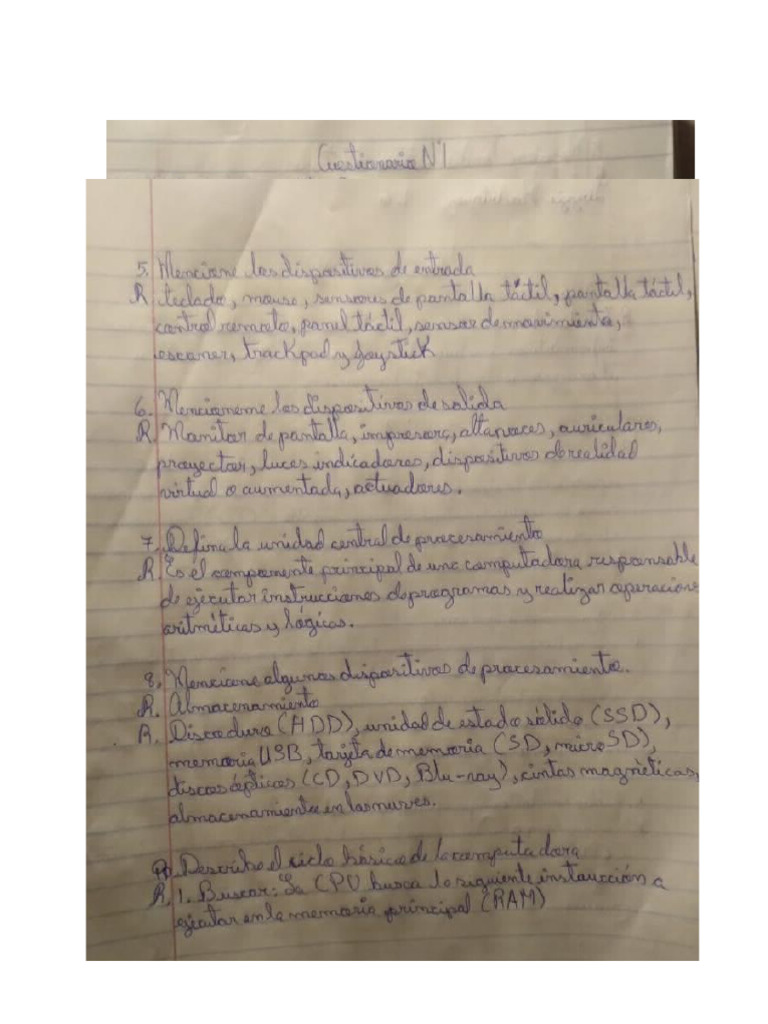 Cuestionario N°1
5. Mencione los dispositivos de entrada
R teclado, mouse, sensores de pantalla táctil, pantalla táctil,
control remoto, panel táctil, sensor de movimiento,
escaner, trackpad y Joystick
6. Mencioneme los dispositivos de salida
R. Monitor de pantalla, impresora, altavoces, auriculares,
proyector, luces indicadores, dispositivos de realidad
virtual o aumentada, actuadores.
7. Defina la unidad central de procesamiento
R. Es el componente principal de una computadora responsable
de ejecutar instrucciones de programas y realizar operacione
aritméticas y lógicas.
8. Mencione algunos dispositivos de procesamiento.
R. Almacenamiento
R. Disco duro (HDD), unidad de estado sólido (SSD),
memoria USB, tarjeta de memoria (SD, micro SD),
discos ópticos (CD, DVD, Blu-ray), cintas magnèticas,
almacenamiento en las nuves.
9. Describa el ciclo básico de la computadora
R. 1. Buscar: La CPU busca la siguiente instrucción a
ejcutar en la memoria principal (RAM)